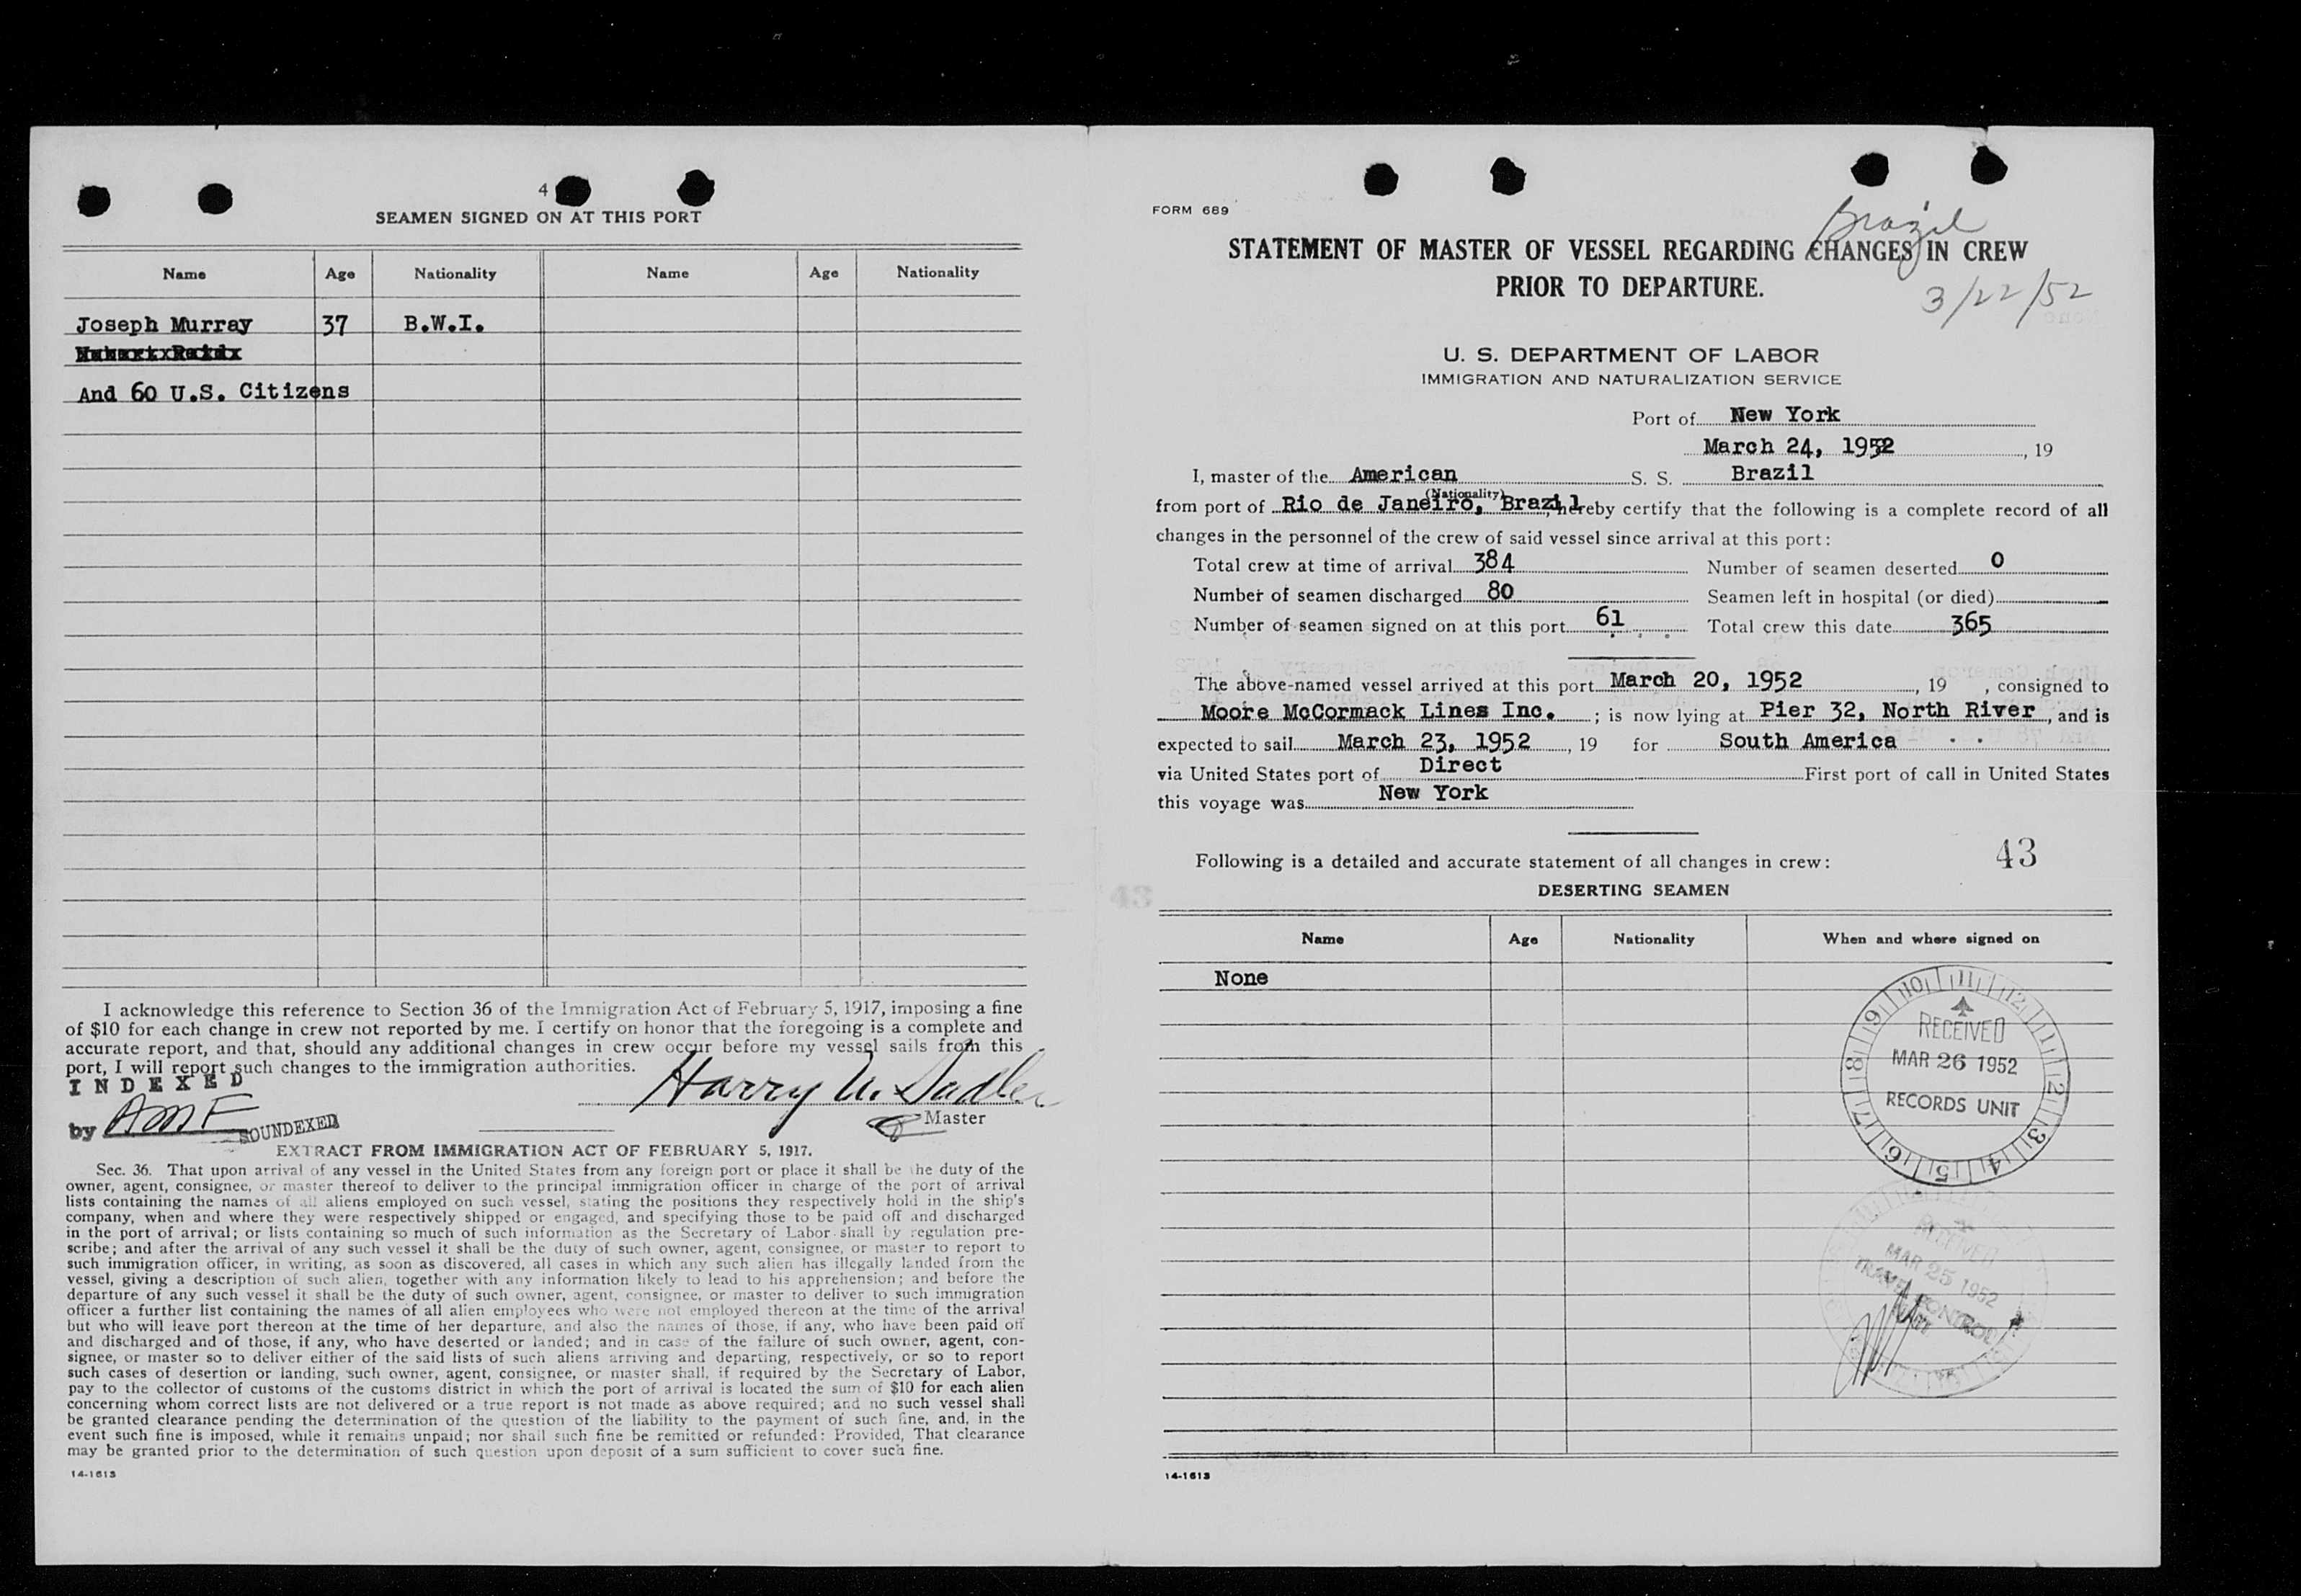 4
SEAMEN SIGNED ON AT THIS PORT
Name Age Nationality Name Age Nationality
Joseph Murray 37 B.W.I.
And 60 U.S. Citizens
I acknowledge this reference to Section 36 of the Immigration Act of February 5, 1917, imposing a fine
of $10 for each change in crew not reported by me. I certify on honor that the foregoing is a complete and
accurate report, and that, should any additional changes in crew occur before my vessel sails from this
port, I will report such changes to the immigration authorities.
INDEXED
by AMF
SOUNDEXED
Harry N. Sadler
Master
EXTRACT FROM IMMIGRATION ACT OF FEBRUARY 5, 1917.
Sec. 36. That upon arrival of any vessel in the United States from any foreign port or place it shall be the duty of the
owner, agent, consignee, or master thereof to deliver to the principal immigration officer in charge of the port of arrival
lists containing the names of all aliens employed on such vessel, stating the positions they respectively hold in the ship's
company, when and where they were respectively shipped or engaged, and specifying those to be paid off and discharged
in the port of arrival; or lists containing so much of such information as the Secretary of Labor shall by regulation pre-
scribe; and after the arrival of any such vessel it shall be the duty of such owner, agent, consignee, or master to report to
such immigration officer, in writing, as soon as discovered, all cases in which any such alien has illegally landed from the
vessel, giving a description of such alien, together with any information likely to lead to his apprehension; and before the
departure of any such vessel it shall be the duty of such owner, agent, consignee, or master to deliver to such immigration
officer a further list containing the names of all alien employees who were not employed thereon at the time of the arrival
but who will leave port thereon at the time of her departure, and also the names of those, if any, who have been paid off
and discharged and of those, if any, who have deserted or landed; and in case of the failure of such owner, agent, con-
signee, or master so to deliver either of the said lists of such aliens arriving and departing, respectively, or so to report
such cases of desertion or landing, such owner, agent, consignee, or master shall, if required by the Secretary of Labor,
pay to the collector of customs of the customs district in which the port of arrival is located the sum of $10 for each alien
concerning whom correct lists are not delivered or a true report is not made as above required; and no such vessel shall
be granted clearance pending the determination of the question of the liability to the payment of such fine, and, in the
event such fine is imposed, while it remains unpaid; nor shall such fine be remitted or refunded: Provided, That clearance
may be granted prior to the determination of such question upon deposit of a sum sufficient to cover such fine.
14-1613
FORM 689
Brazil
STATEMENT OF MASTER OF VESSEL REGARDING CHANGES IN CREW
PRIOR TO DEPARTURE.
3/22/52
U. S. DEPARTMENT OF LABOR
IMMIGRATION AND NATURALIZATION SERVICE
Port of New York
March 24, 1952, 19
I, master of the American S. S. Brazil
(Nationality)
from port of Rio de Janeiro, Brazil, hereby certify that the following is a complete record of all
changes in the personnel of the crew of said vessel since arrival at this port:
Total crew at time of arrival 384 Number of seamen deserted 0
Number of seamen discharged 80 Seamen left in hospital (or died)
Number of seamen signed on at this port 61 Total crew this date 365
The above-named vessel arrived at this port March 20, 1952, 19 , consigned to
Moore McCormack Lines Inc. ; is now lying at Pier 32, North River, and is
expected to sail March 23, 1952, 19 for South America
via United States port of Direct First port of call in United States
this voyage was New York
Following is a detailed and accurate statement of all changes in crew:
43
DESERTING SEAMEN
Name Age Nationality When and where signed on
None
RECEIVED
MAR 26 1952
RECORDS UNIT
10 11 12 1 2 3 4 5 6 7 8 9
RECEIVED
MAR 25 1952
TRAVEL CONTROL
UNIT
14-1613